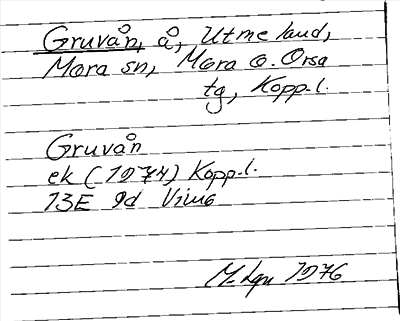 Gruvån, å, Utmeland,
Mora sn, Mora o. Orsa
tg, Kopp.l.
Gruvån
ek (1974) Kopp.l.
13E 9d Vimo
1976